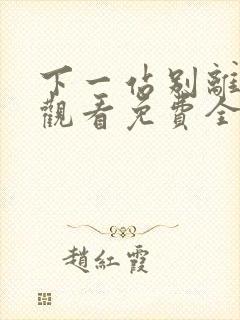 下一站别離
觀看免費全
趙紅霞